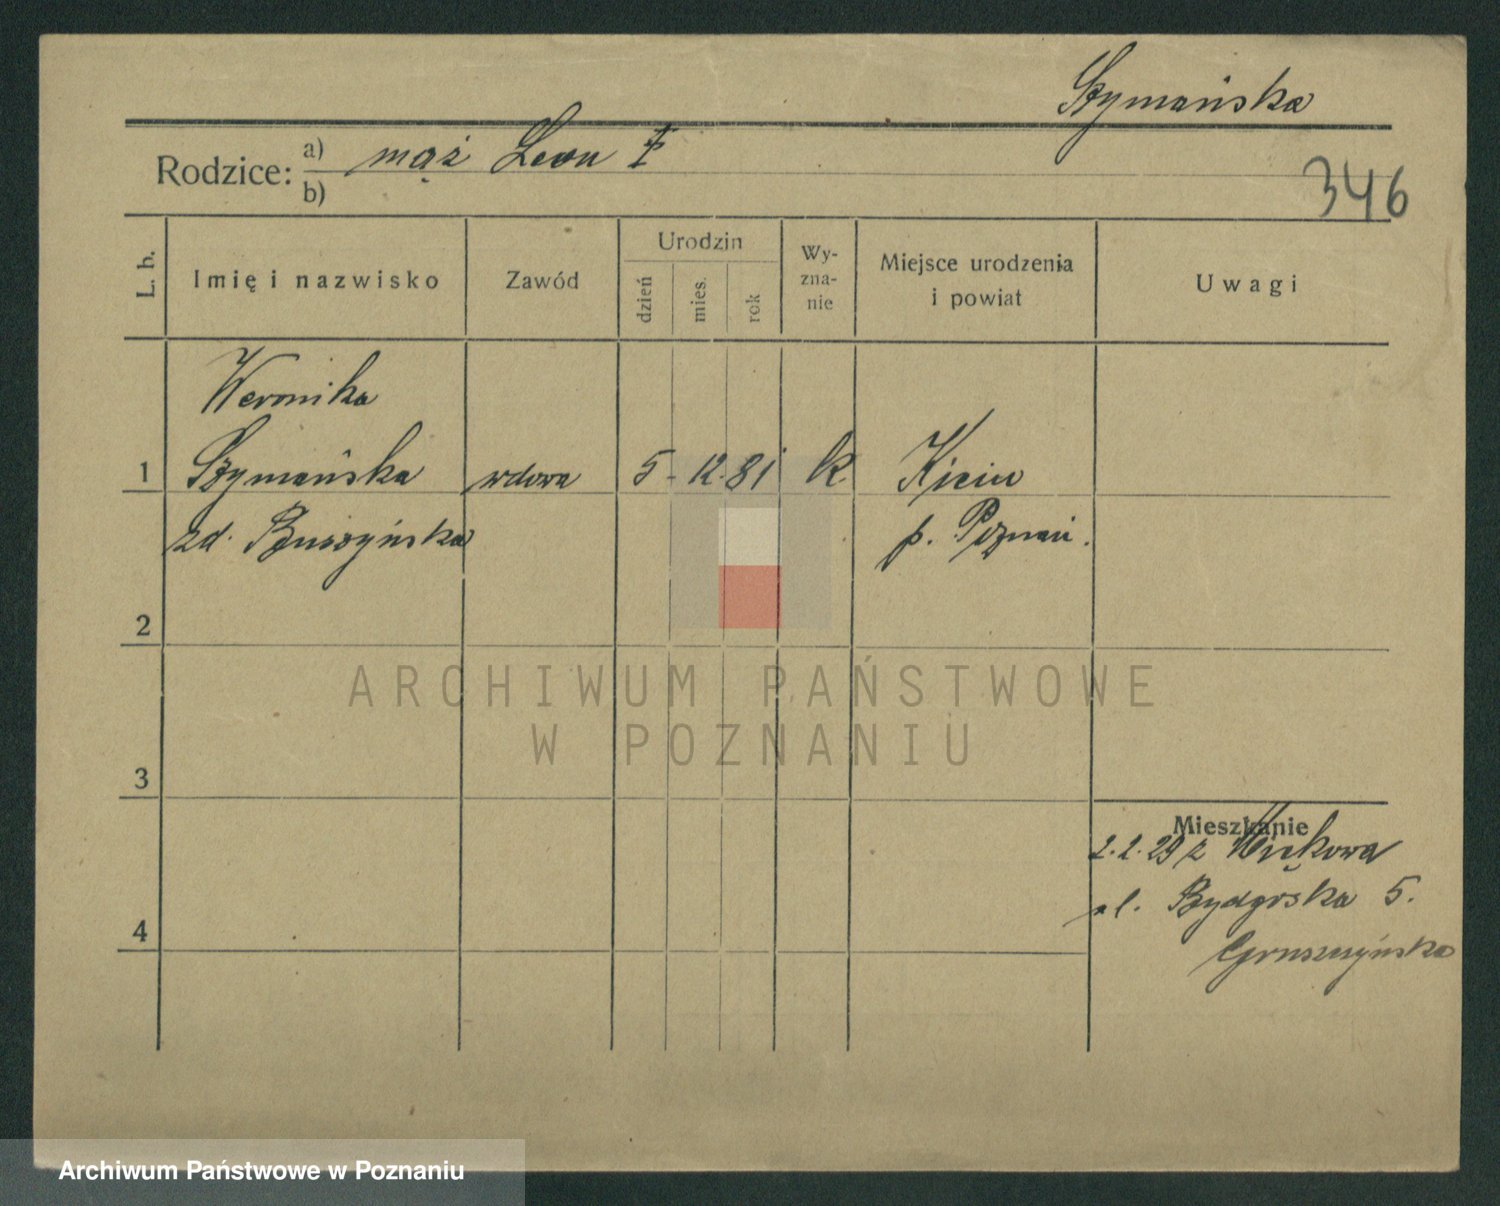 Szymańska
Rodzice: a) mąż Leon †
b)
346
L. b.
Imię i nazwisko
Zawód
Urodzin
dzień
mies.
rok
Wy-
zna-
nie
Miejsce urodzenia
i powiat
Uwagi
Weronika
1 Szymańska wdowa 5-12.81 k. Kicin
zd. p. Poznań.
2
ARCHIWUM PAŃSTWOWE
W POZNANIU
3
Mieszkanie
2.2.29 z
ul. Bydgoska 5.
4
Gruszczyńska
Archiwum Państwowe w Poznaniu